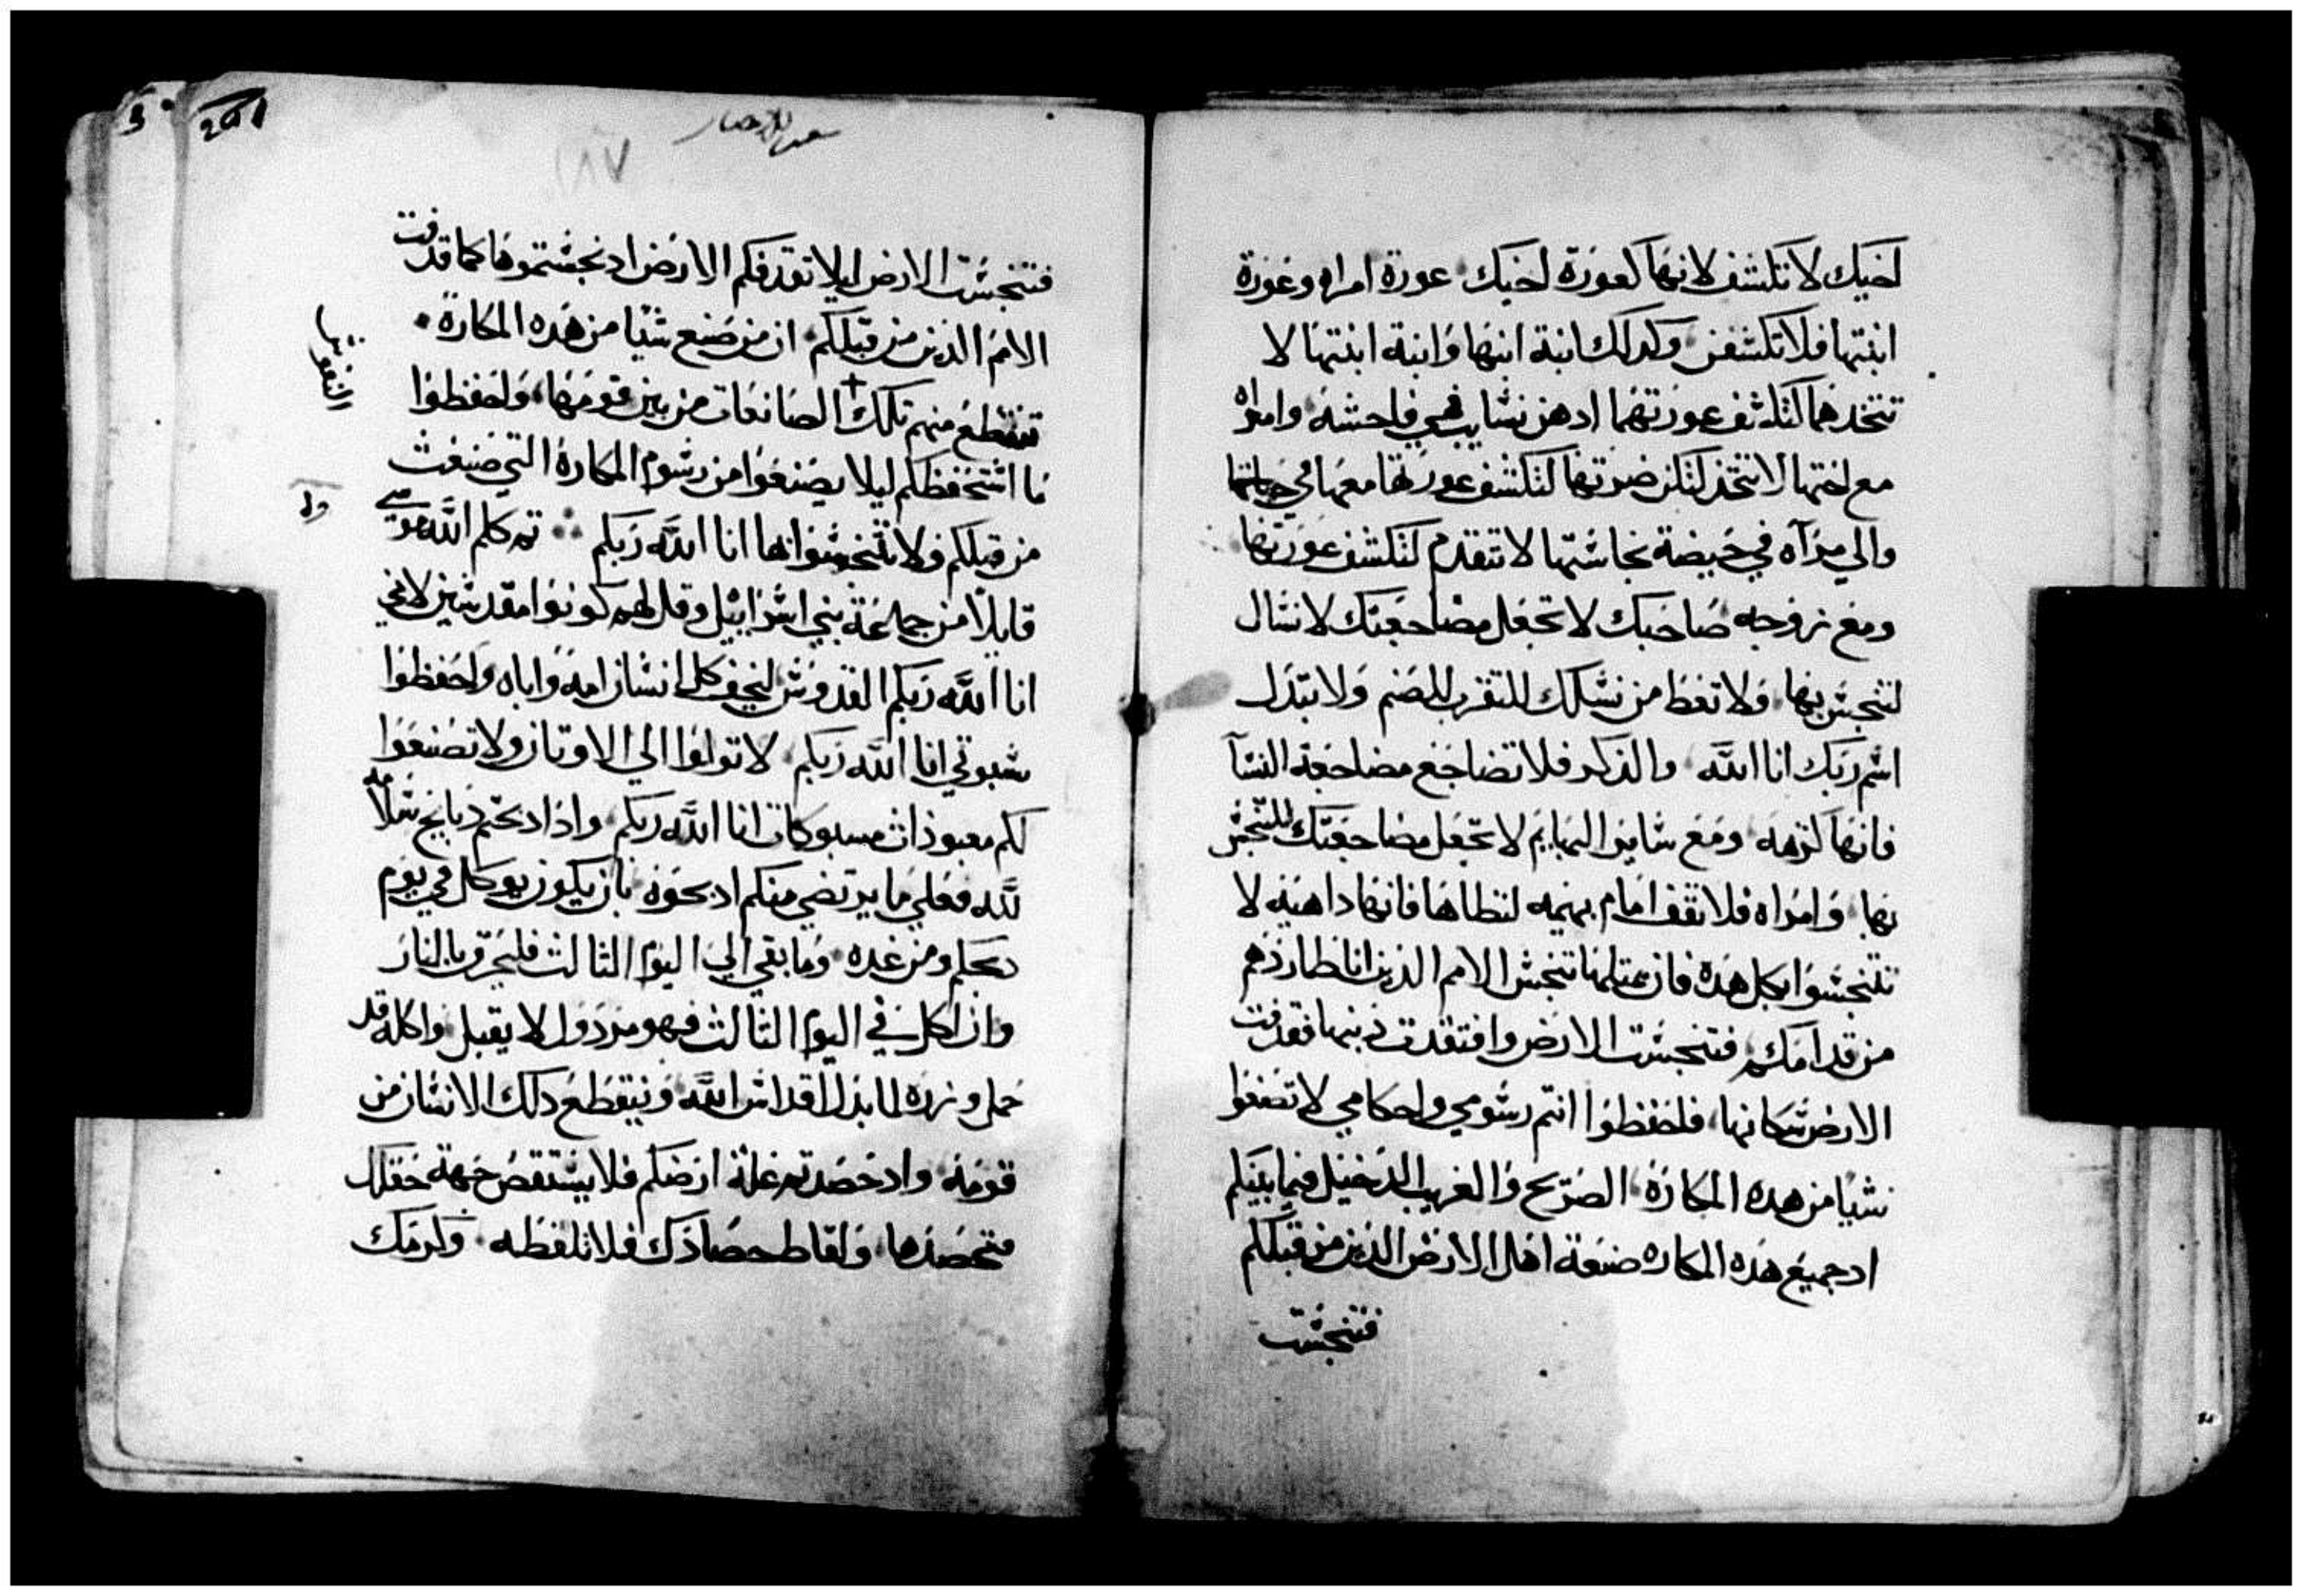 اخيك لا تكشف لانها كعورة اخيك عورة امراه وعورة
ابنتها فلا تكشفن وكدلك ابنة ابنها وابنة ابنتها لا
تتخدهما لتكشف عورتهما ادهن نشايب هي فاحشه وامراه
مع اختها لا تتخد لتكن ضرتها لتكشف عورتها معها في حياتها
والي مرآه في حيضة نجاستها لا تتقدم لتكشف عورتها
ومع زوجه صاحبك لا تجعل مضاجعتك لانسال
لتنجس بها ولا تعط من نسلك للتقرب للصنم ولا تبتدل
اسم ربك انا الله والدكر فلا تضاجع مضاجعة النسآ
فانها لزهه ومع ساير البهايم لا تجعل مضاجعتك للتنجس
بها وامراه فلا تقف امام بهيمه لتطاها فانها داهيه لا
تتنجسوا بكل هده فان بمتلها تنجس الامم الدين انا طاردهم
من قدامكم فتنجست الارض وافتقدت دنبها فقدفت
الارض سكانها فلحفظوا انتم رسومي واحكامي لا تصنعوا
شيا من هده المكاره الصريح والغريب الدخيل فيما بينكم
اد جميع هده المكاره صنعة اهل الارض الدين من قبلكم
فتنجست
٢٨٧
فتنجست الارض ليلا تقدفكم الارض اد نجستموها كما قدفت
الامم الدين من قبلكم ان من صنع شيا من هده المكارة
تنقطع منهم تلك الصانعات من بين قومها واحفظوا
النفوس
ما استحفظكم ليلا يصنعوا من رسوم المكاره التي صنعت
من قبلكم ولا تتنجسوا بها انا الله ربكم تم كلم الله موسى
قايلا من جماعة بني اسراييل وقل لهم كونوا مقدسين لاني
انا الله ربكم القدوس ليخف كل انسان امه واباه واحفظوا
سبوتي انا الله ربكم لا تولوا الي الاوتان ولا تصنعوا
لكم معبودات مسبوكات انا الله ربكم وادا دبحتم دبايح سلامه
لله فعلي ما يرتضي منكم ادبحوه بان يكون يوكل في يوم
دبحكم ومن غده وما بقي الي اليوم التالت فليحرق بالنار
وان اكل في اليوم التالت فهو مردول لا يقبل واكله قد
حمل وزره لما بدل اقداس الله وينقطع دلك الانسان من
قومه واد حصدتم غلة ارضكم فلا يستقص جهة حقلك
فتحصدها ولقاط حصادك فلا تلقطه وكرمك